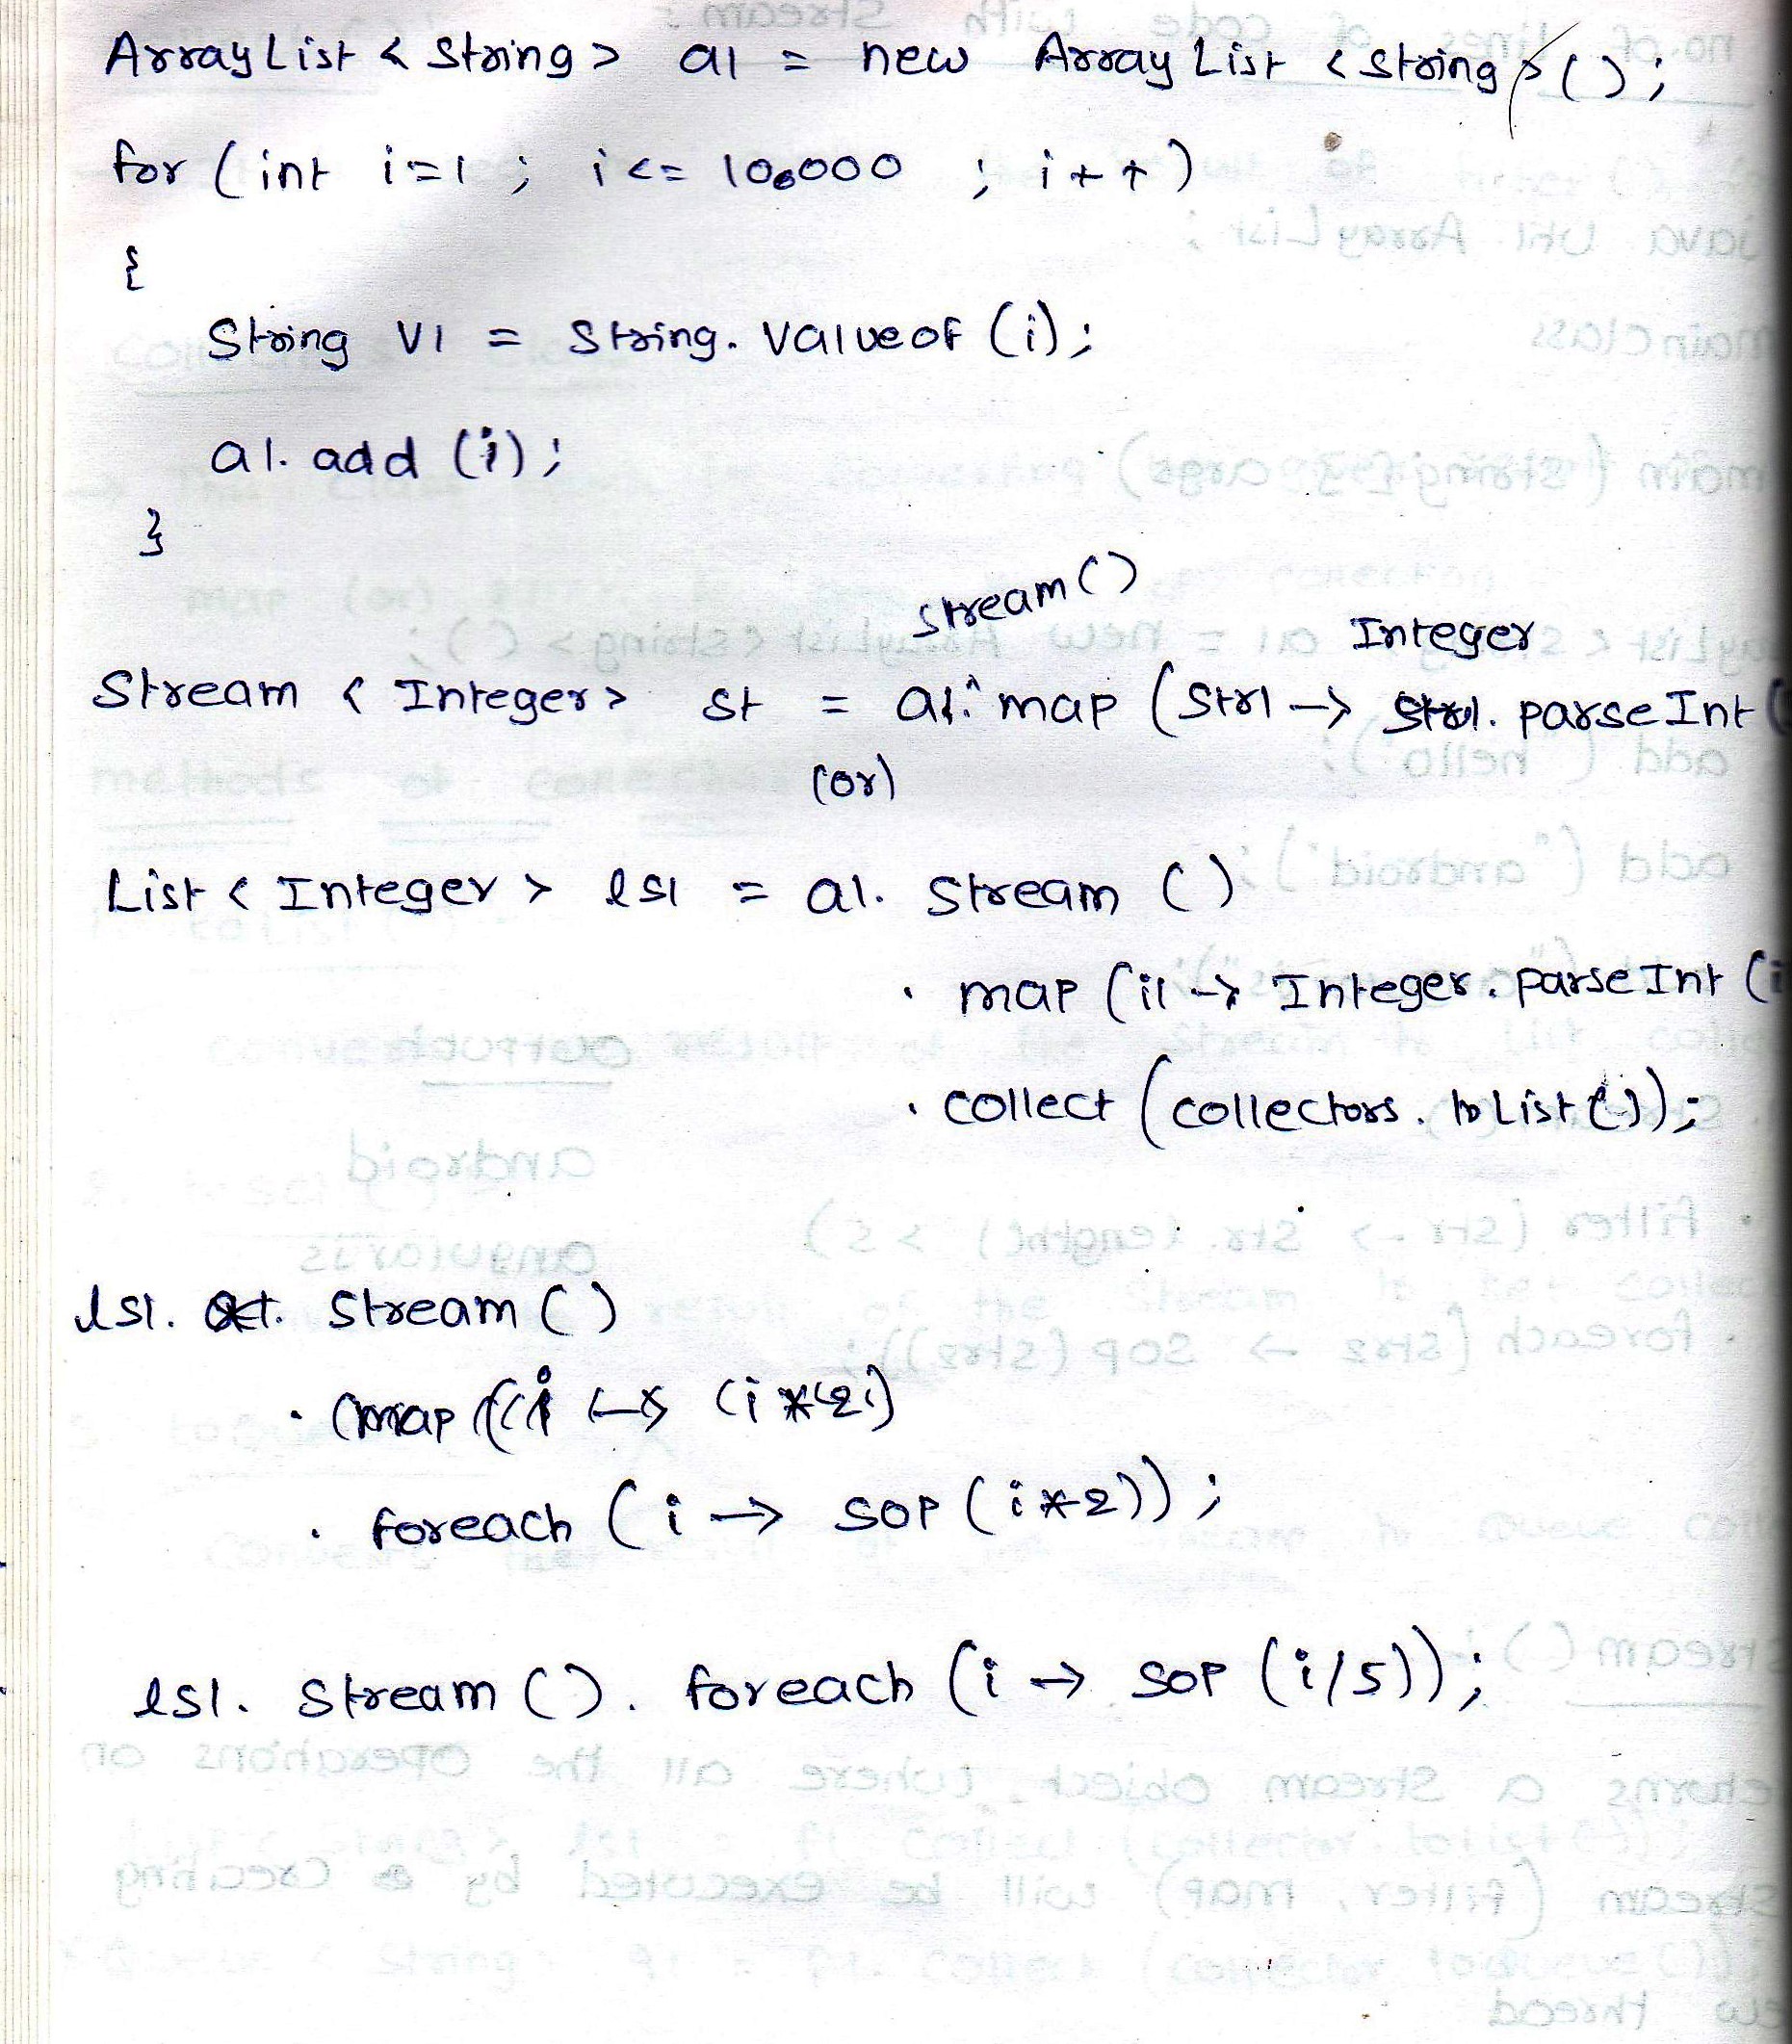 ArrayList < String > al = new ArrayList < String > ();
for ( int i=1 ; i <= 10,000 ; i++ )
{
String V1 = String. valueof (i);
al. add (i);
}
stream()
Integer
Stream < Integer > st = al. map ( Str1 → Str1. parseInt (
(or)
List < Integer > ls1 = al. Stream ()
. map ( i1 → Integer. parseInt (i
. collect ( collectors. toList());
ls1. Stream ()
. map ( i → (i*2)
. foreach ( i → SOP (i*2));
ls1. Stream (). foreach ( i → SOP (i/5));